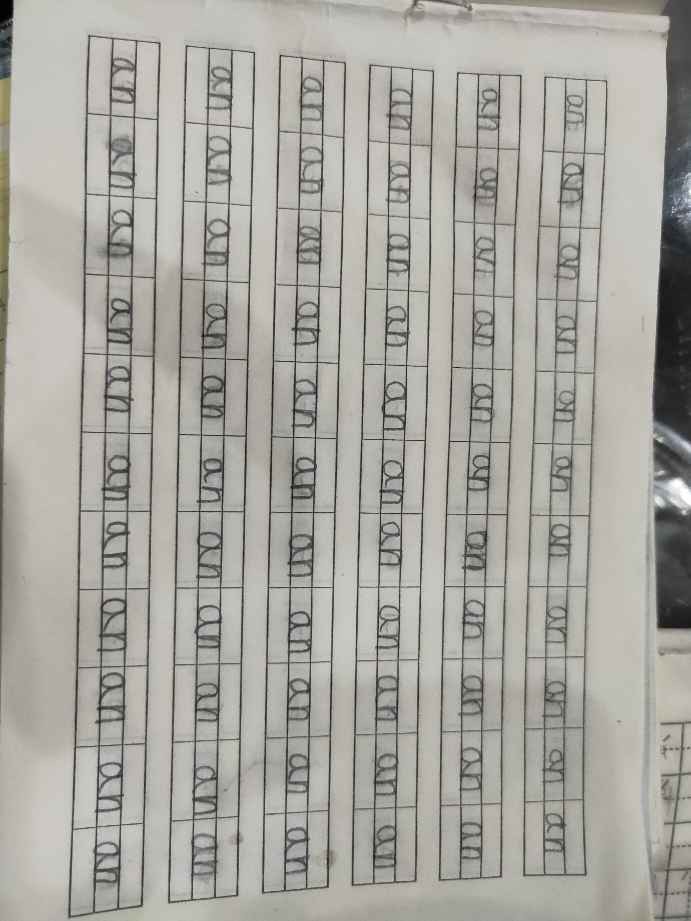 an an an an an an an an an an an
an an an an an an an an an an an
an an an an an an an an an an an
an an an an an an an an an an an
an an an an an an an an an an an
an an an an an an an an an an an